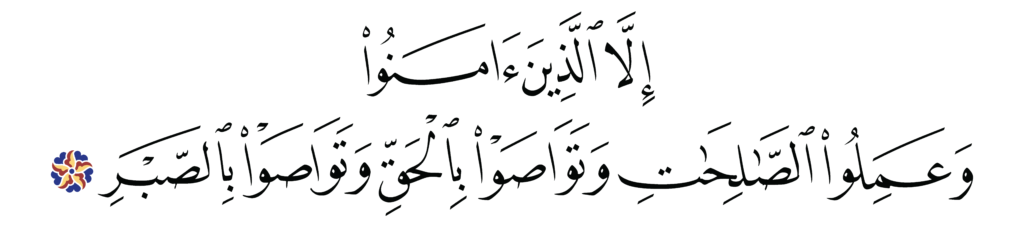 إِلَّا ٱلَّذِينَ ءَامَنُوا۟
وَعَمِلُوا۟ ٱلصَّٰلِحَٰتِ وَتَوَاصَوْا۟ بِٱلْحَقِّ وَتَوَاصَوْا۟ بِٱلصَّبْرِ